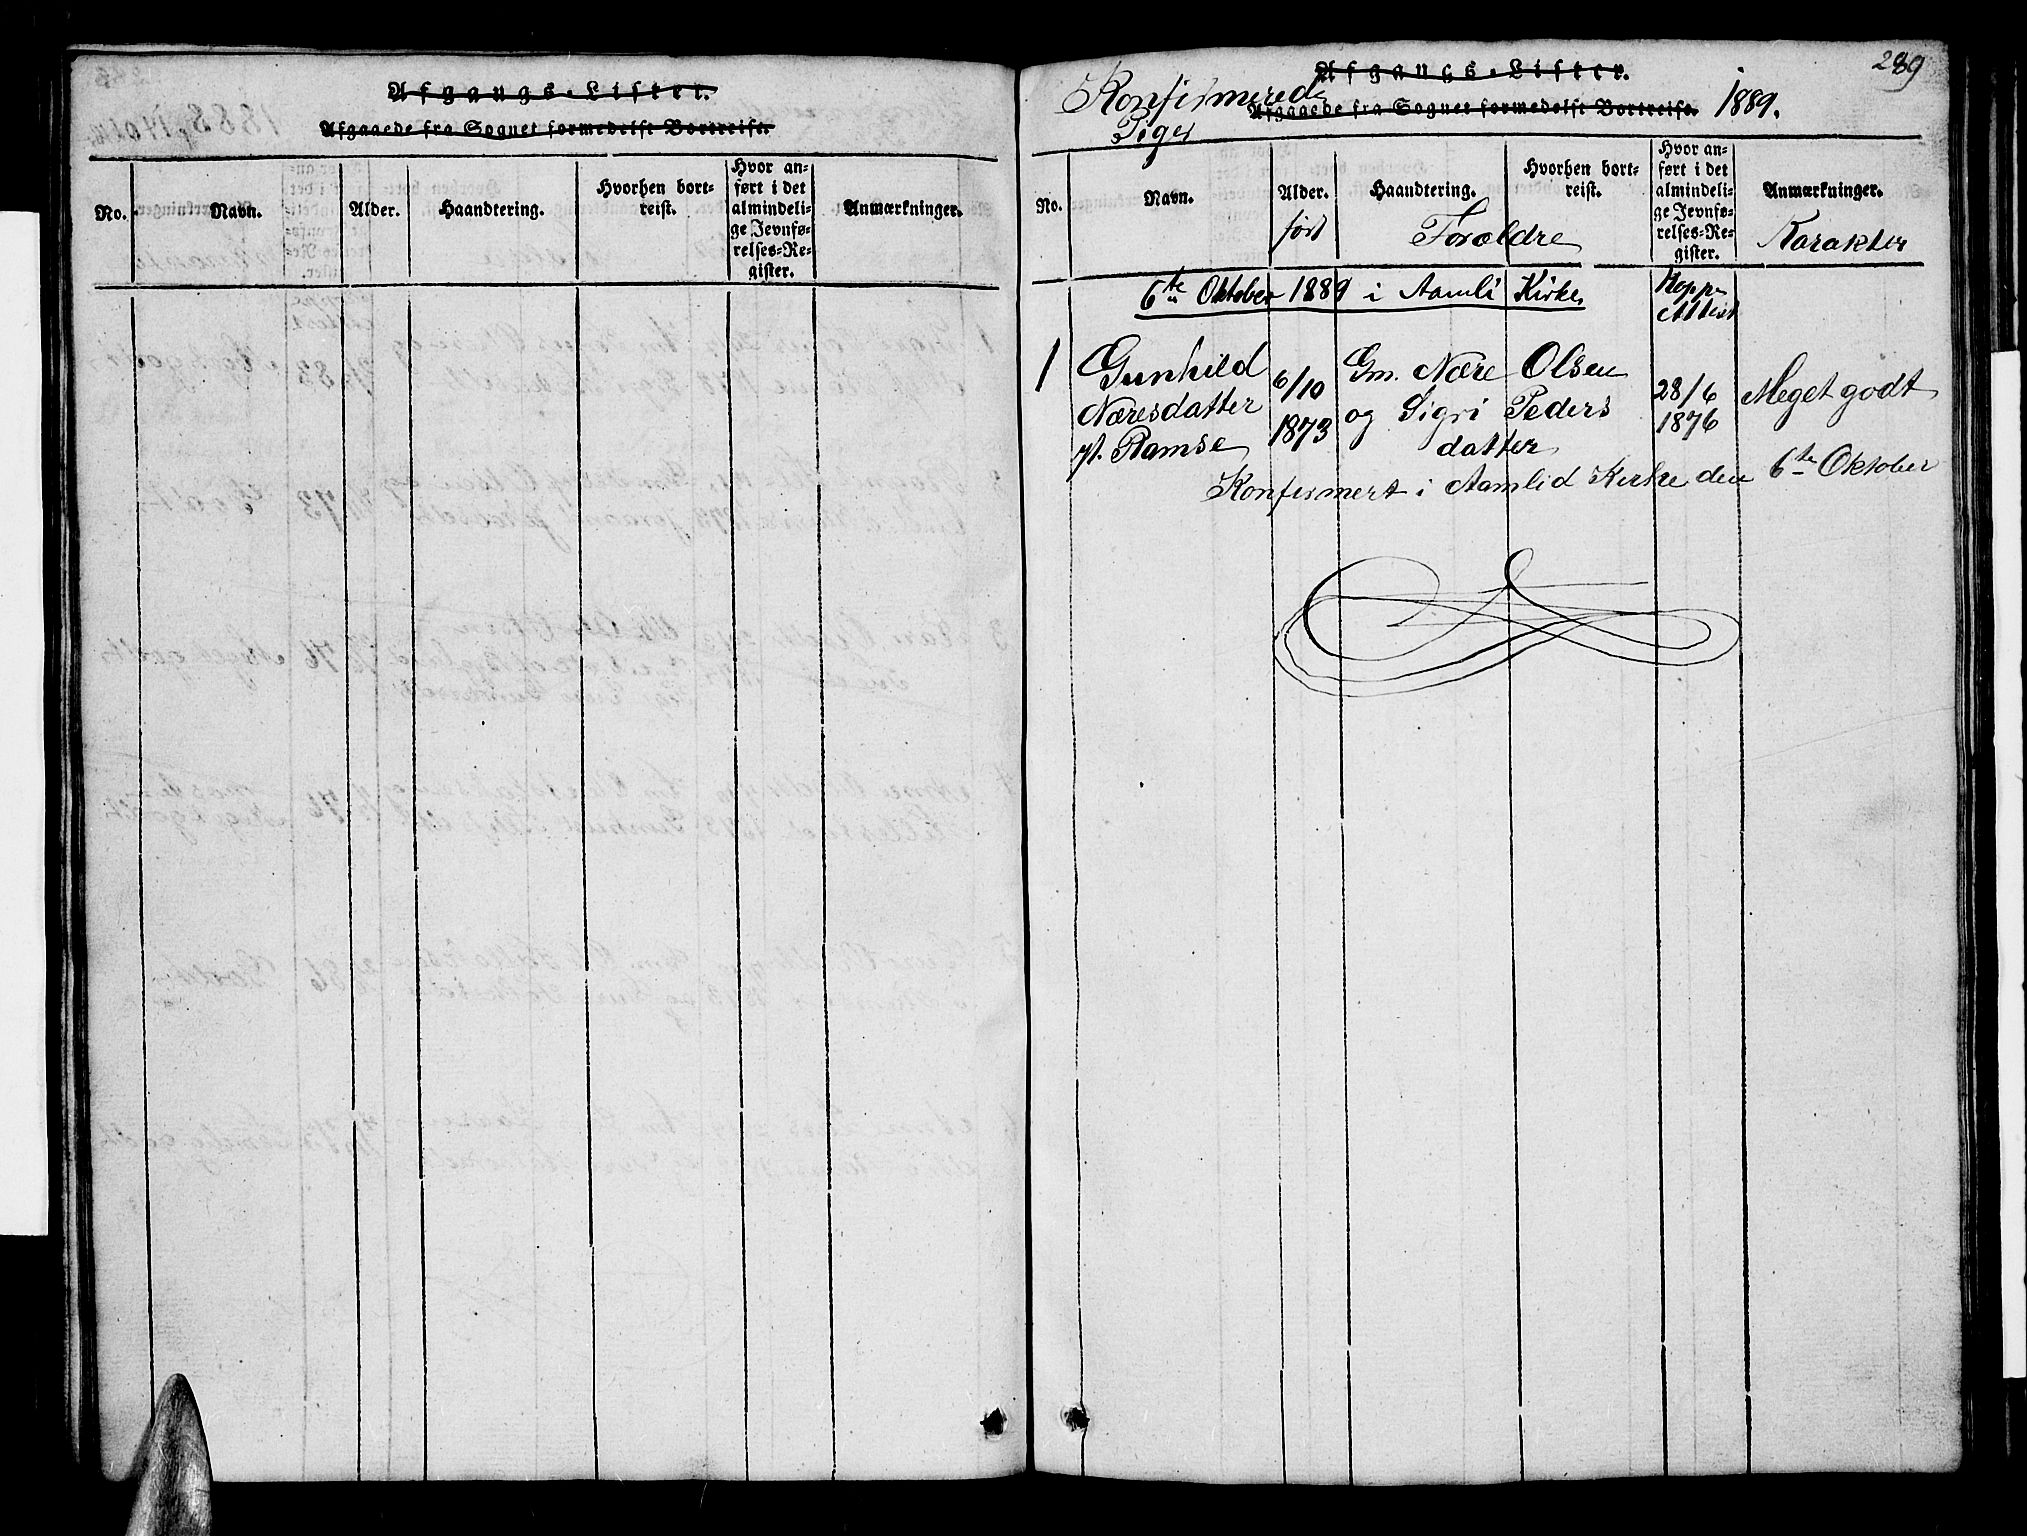 Afgangs-Lister.
Afgaaede fra Sognet formedelst Bortreise.
No.
Navn.
Alder.
Haandtering.
Hvorhen bort-
reist.
Hvor an-
ført i det
almindeli-
ge Jevnfø-
relses-Re-
gister.
Anmærkninger.
289
Afgangs-Lister.
Konfirmerede
Afgaaede fra Sognet formedelst Bortreise. 1889.
Piger
No.
Navn.
Alder.
født
Haandtering.
Hvorhen bort-
reist.
Forældre
Hvor an-
ført i det
almindeli-
ge Jevnfø-
relses-Re-
gister.
Anmærkninger.
Karakter
6te Oktober 1889 i Aamli Kirke
Koppe
Attest
1
Gunhild
Næresdatter
Ramse
6/10
1873
Gm. Nære Olsen
og Sigri Peders
datter
28/6
1876
Meget godt
Konfirmert i Aamlid Kirke den 6te Oktober